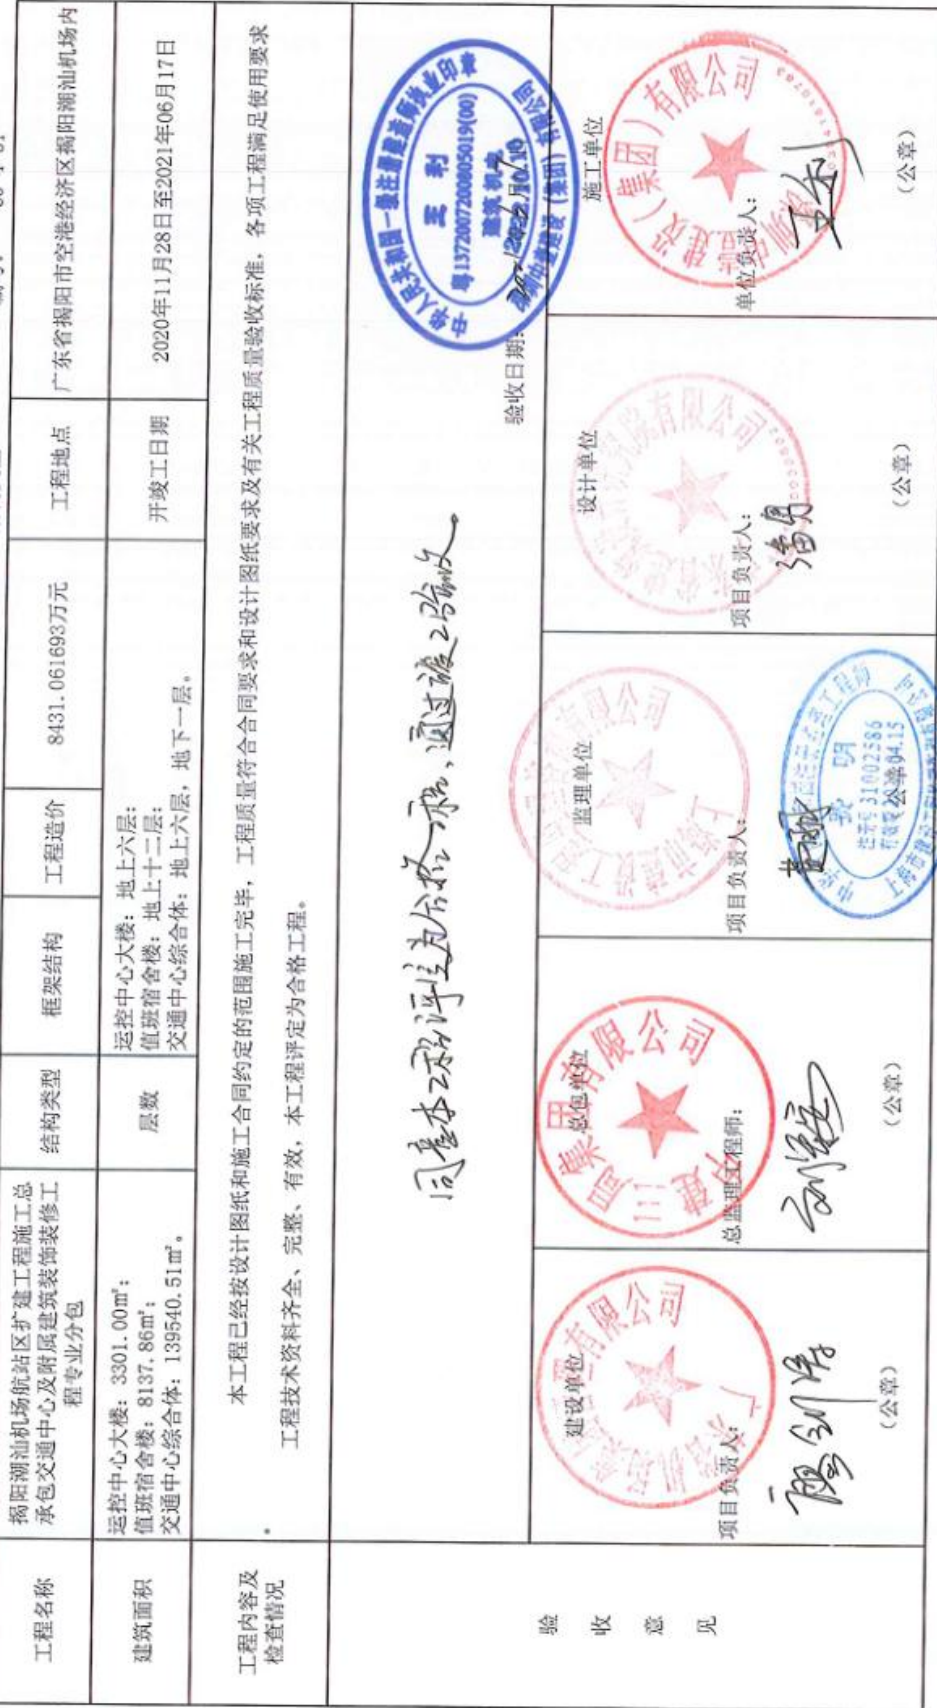 工程名称
揭阳潮汕机场航站区扩建工程施工总
承包交通中心及附属建筑装饰装修工
程专业分包
结构类型
框架结构
工程造价
8431.061693万元
工程地点
广东省揭阳市空港经济区揭阳潮汕机场内
建筑面积
运控中心大楼：3301.00㎡；
值班宿舍楼：8137.86㎡；
交通中心综合体：139540.51㎡。
层数
运控中心大楼：地上六层；
值班宿舍楼：地上十二层；
交通中心综合体：地上六层，地下一层。
开竣工日期
2020年11月28日至2021年06月17日
工程内容及
检查情况
本工程已经按设计图纸和施工合同约定的范围施工完毕，工程质量符合合同要求和设计图纸要求及有关工程质量验收标准，各项工程满足使用要求
。
工程技术资料齐全、完整、有效，本工程评定为合格工程。
验收意见
同意本工程评定为合格工程、通过竣工验收
验收日期：
中华人民共和国一级注册建造师执业印章
王利
粤1372007200805019(00)
建筑 机电
建设单位
项目负责人：
（公章）
总包单位
中建三局集团有限公司
总监理工程师：
（公章）
监理单位
项目负责人：
注册号31002586
公章
设计单位
项目负责人：
（公章）
施工单位
建设（集团）有限公司
单位负责人：
王利
（公章）